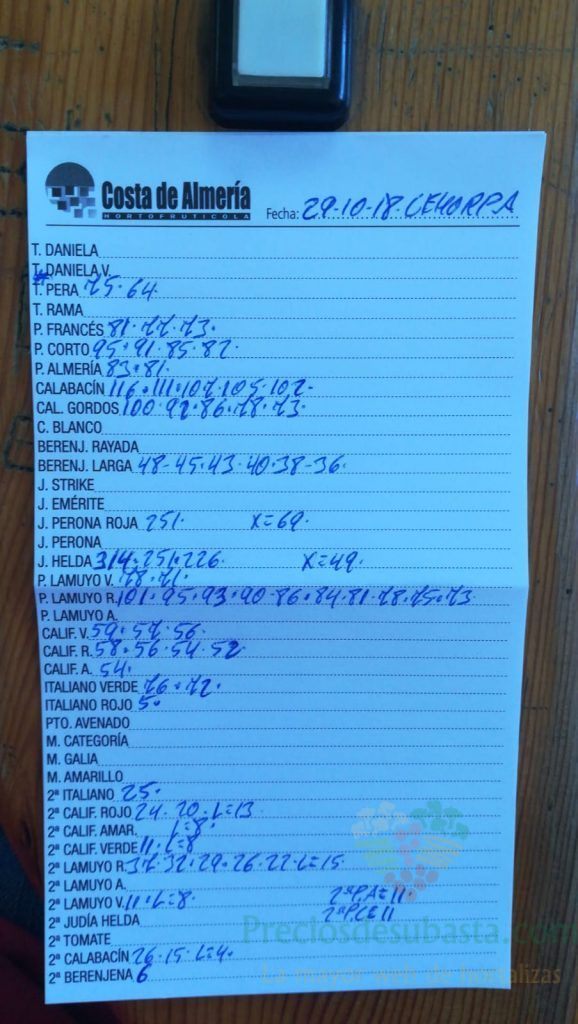 Costa de Almería
HORTOFRUTICOLA
Fecha: 29-10-18 CEHORPA
T. DANIELA
T. DANIELA V.
T. PERA 75. 64.
T. RAMA
P. FRANCÉS 81. 77. 73.
P. CORTO 95. 91. 85. 82.
P. ALMERÍA 83. 81.
CALABACÍN 116. 111. 107. 105. 102.
CAL. GORDOS 100. 92. 86. 78. 73.
C. BLANCO
BERENJ. RAYADA
BERENJ. LARGA 48-45. 43. 40. 38-36.
J. STRIKE
J. EMÉRITE
J. PERONA ROJA 251. X=69.
J. PERONA
J. HELDA 314. 251. 226. X=49.
P. LAMUYO V. 78. 71.
P. LAMUYO R. 101. 95. 93. 90. 86. 84. 81. 78. 75. 73.
P. LAMUYO A.
CALIF. V. 59. 57. 56.
CALIF. R. 58. 56. 54. 52
CALIF. A. 54.
ITALIANO VERDE 76. 72.
ITALIANO ROJO 50
PTO. AVENADO
M. CATEGORÍA
M. GALIA
M. AMARILLO
2ª ITALIANO 25.
2ª CALIF. ROJO 24. 20. L=13
2ª CALIF. AMAR. L=8.
2ª CALIF. VERDE 11. L=8
2ª LAMUYO R. 37. 32. 29. 26. 22. L=15
2ª LAMUYO A.
2ª LAMUYO V. 11. L=8. 2ªP.A=11.
2ª JUDÍA HELDA 2ªP.C=11
2ª TOMATE
Preciosdesubasta.com
2ª CALABACÍN 26. 15. L=4.
La mayor web de hortalizas
2ª BERENJENA 6